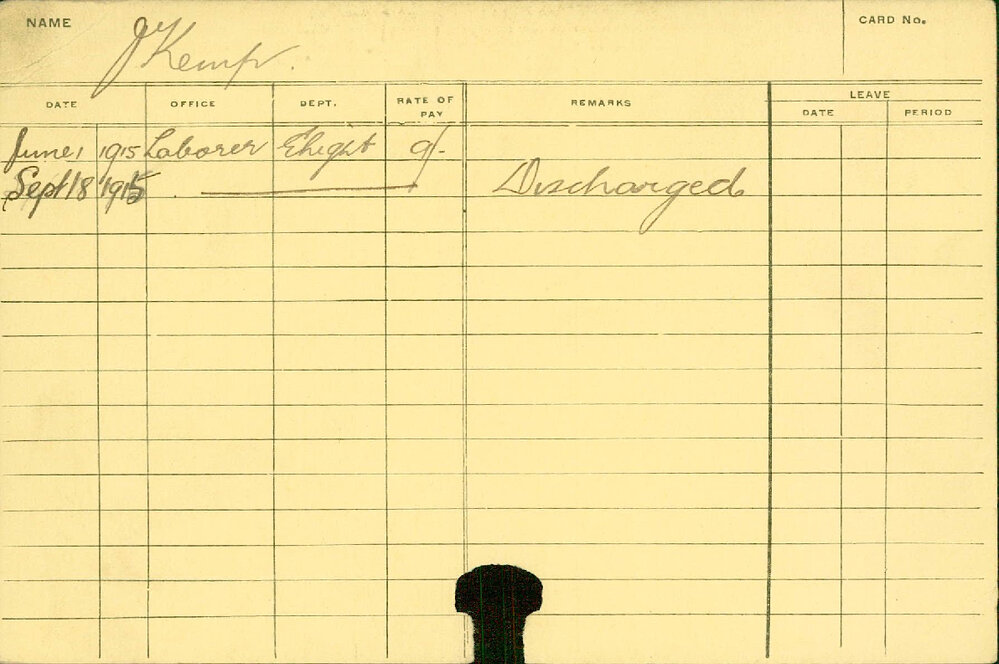 NAME J Kemp. CARD No.
DATE OFFICE DEPT. RATE OF PAY REMARKS LEAVE
DATE PERIOD
June 1 1915 Laborer 9/-
Sept 18 1915 Discharged